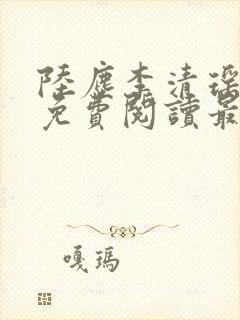 陸塵李清瑤
免費閱讀最
嘎瑪